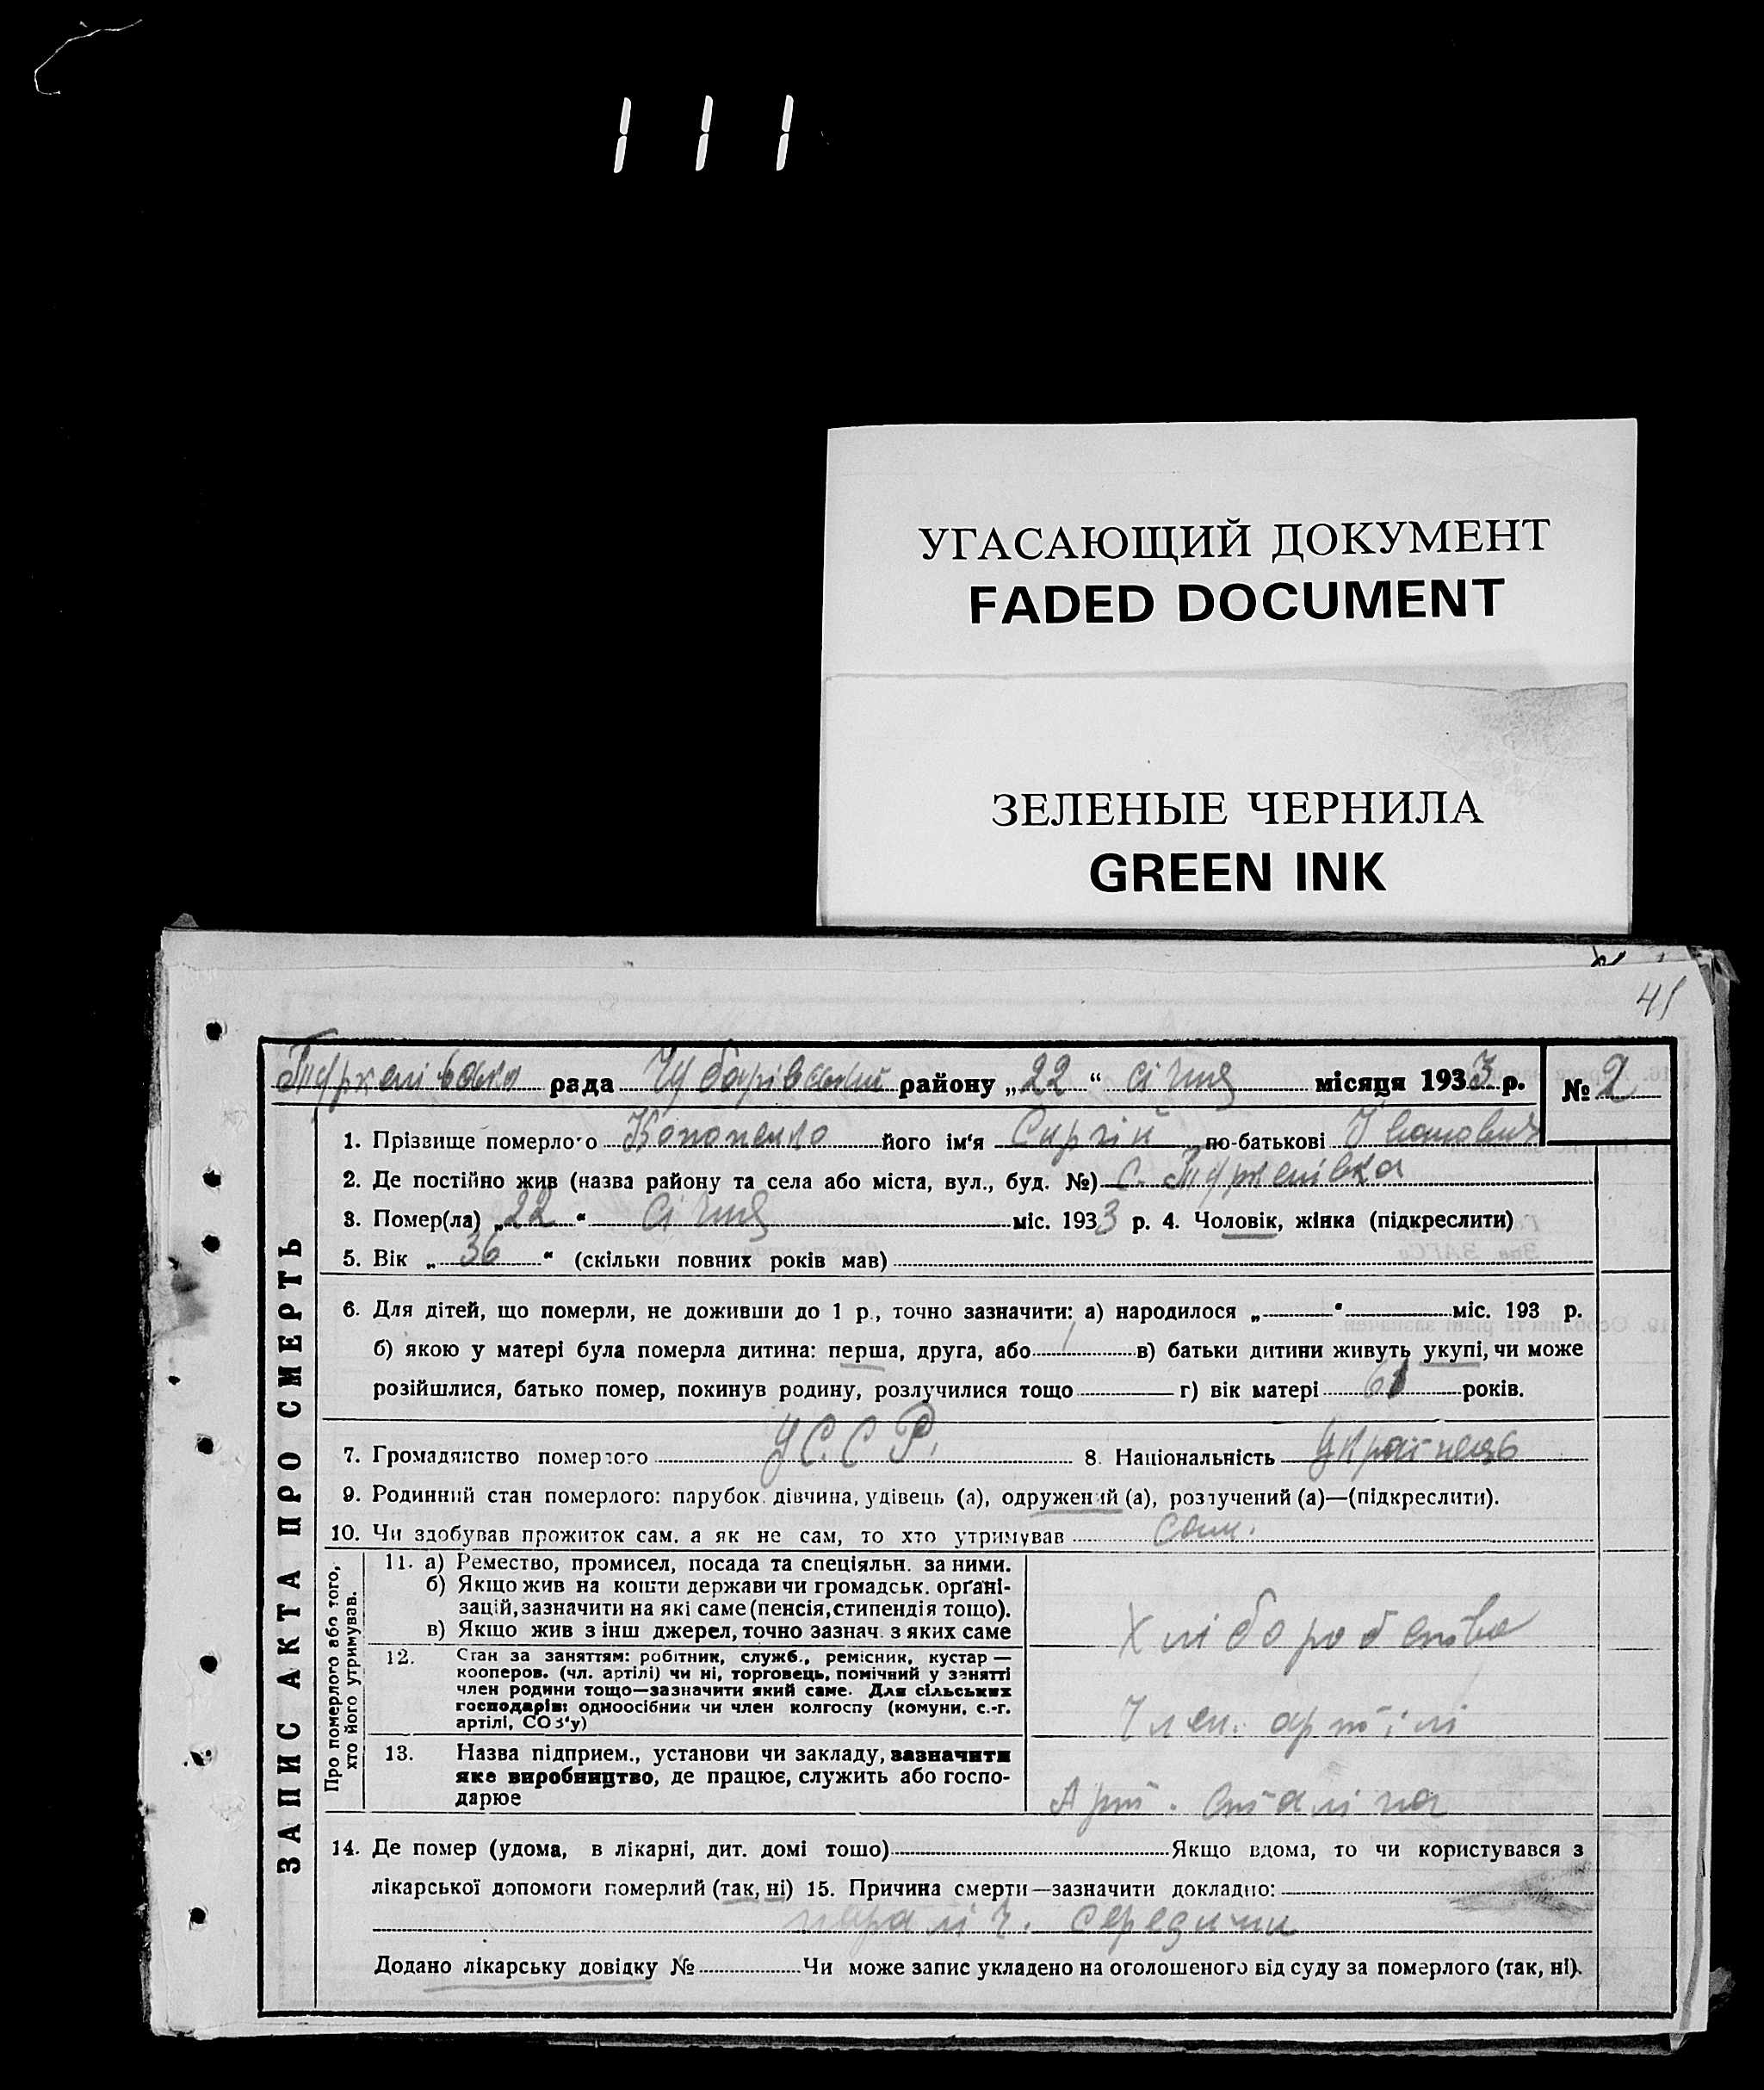 111
УГАСАЮЩИЙ ДОКУМЕНТ
FADED DOCUMENT
ЗЕЛЕНЫЕ ЧЕРНИЛА
GREEN INK
рада Чубарівський району „22“ січня місяця 1933 р. № 2
1. Прізвище померлого Кононенко його ім'я Сиргій по-батькові Іванович
2. Де постійно жив (назва району та села або міста, вул., буд. №) С. Туркенівка
3. Помер(ла) „22“ Січня міс. 1933 р. 4. Чоловік, жінка (підкреслити)
5. Вік „36“ (скільки повних років мав)
6. Для дітей, що померли, не доживши до 1 р., точно зазначити: а) народилося „ “ міс. 193 р.
б) якою у матері була померла дитина: перша, друга, або в) батьки дитини живуть укупі, чи може
розійшлися, батько помер, покинув родину, розлучилися тощо г) вік матері років.
7. Громадянство померлого УССР. 8. Національність Українець
9. Родинний стан померлого: парубок, дівчина, удівець (а), одружений (а), розлучений (а)—(підкреслити).
10. Чи здобував прожиток сам, а як не сам, то хто утримував сам.
ЗАПИС АКТА ПРО СМЕРТЬ
Про померлого або того,
хто його утримував.
11. а) Ремество, промисел, посада та спеціяльн. за ними.
б) Якщо жив на кошти держави чи громадськ. органі-
зацій, зазначити на які саме (пенсія, стипендія тощо).
в) Якщо жив з інш джерел, точно зазнач. з яких саме
Хліборобство
12. Стан за заняттям: робітник, служб., ремісник, кустар—
кооперов. (чл. артілі) чи ні, торговець, помічний у занятті
член родини тощо—зазначити який саме. Для сільських
господарів: одноосібник чи член колгоспу (комуни, с.-г.
артілі, СОЗ'у)
Член. артілі
13. Назва підприєм., установи чи закладу, зазначити
яке виробництво, де працює, служить або госпо-
дарює
Арт. Сталіна
14. Де помер (удома, в лікарні, дит. домі тощо) Якщо вдома, то чи користувався з
лікарської допомоги померлий (так, ні) 15. Причина смерти—зазначити докладно:
параліч.
Додано лікарську довідку № Чи може запис укладено на оголошеного від суду за померлого (так, ні).